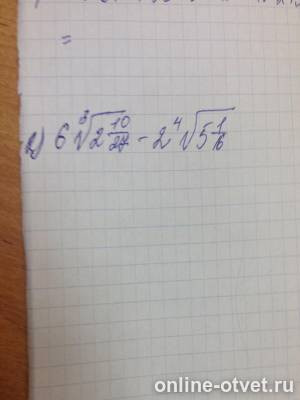 =
2) 6 ∛(2 10/27) - 2 ∜(5 1/16)
online-otvet.ru